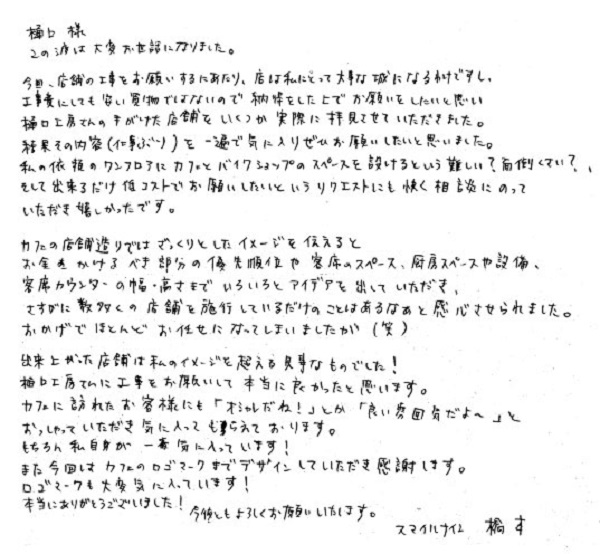 樋口 様
この渡は大変お世話になりました。
今回、店舗の工事をお願いするにあたり、店は私にとって大事な城になるわけですし。
工事費にしても安い買物ではないので納得をした上でお願いをしたいと思い
樋口工房さんの手がけた店舗をいくつか実際に拝見させていただきました。
結果その内容(仕事ぶり)を一遍で気に入りぜひお願いしたいと思いました。
私の依頼のワンフロアにカフェとバイクショップのスペースを設けるという難しい?面倒くさい?、
そして出来るだけ低コストでお願いしたいというリクエストにも快く相談にのって
いただき嬉しかったです。
カフェの店舗造りではざっくりとしたイメージを伝えると
お金をかけるべき部分の優先順位や客席のスペース、厨房スペースや設備、
客席カウンターの幅・高さまでいろいろとアイデアを出していただき、
さすがに数多くの店舗を施行しているだけのことはあるなあと感心させられました。
おかげでほとんどお任せになってしまいましたが(笑)
出来上がった店舗は私のイメージを超える見事なものでした!
樋口工房さんに工事をお願いして本当に良かったと思います。
カフェに訪れたお客様にも「オシャレだね!」とか「良い雰囲気だよ〜」と
おっしゃっていただき気に入ってもらえております。
もちろん私自身が一番気に入っています!
また今回はカフェのロゴマークまでデザインしていただき感謝します。
ロゴマークも大変気に入っています!
本当にありがとうございました!
今後ともよろしくお願いいたします。
スマイルナイン 橋本